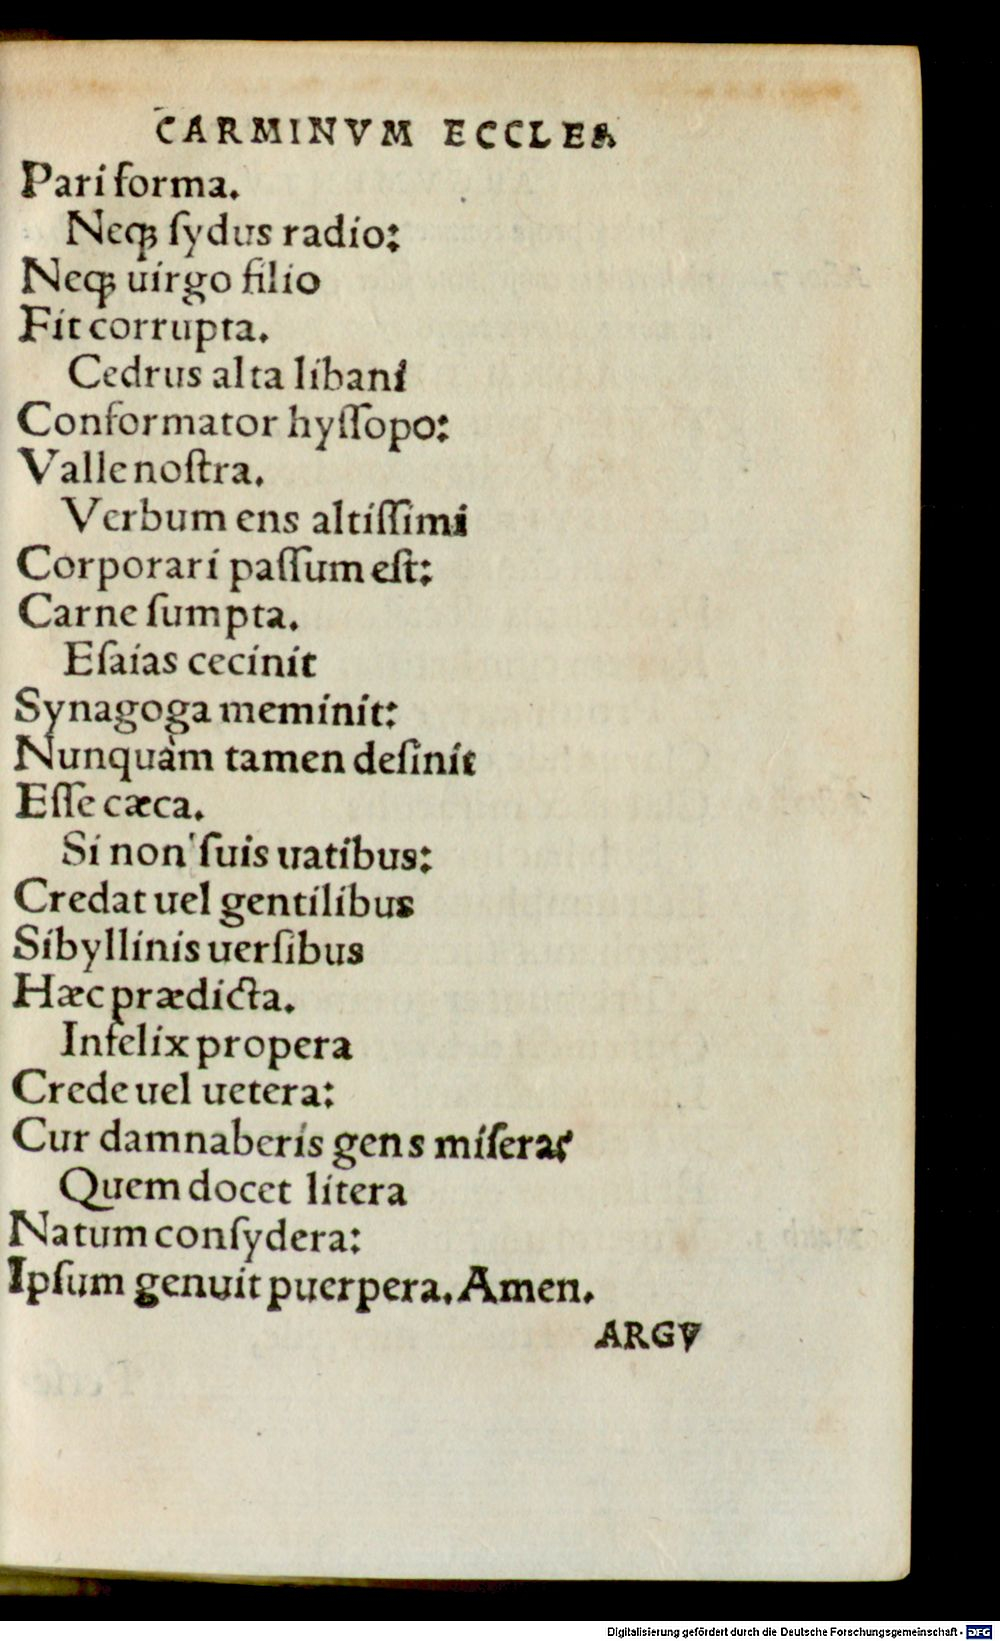 CARMINVM ECCLEA
Pari forma.
Neqꝫ ſydus radio:
Neqꝫ uirgo filio
Fit corrupta.
Cedrus alta libani
Conformator hyſſopo:
Valle noſtra.
Verbum ens altiſſimi
Corporari paſſum eſt:
Carne ſumpta.
Eſaias cecinit
Synagoga meminit:
Nunquàm tamen deſinit
Eſſe cæca.
Si non ſuis uatibus:
Credat uel gentilibus
Sibyllinis uerſibus
Hæc prædicta.
Infelix propera
Crede uel uetera:
Cur damnaberis gens miſera?
Quem docet litera
Natum conſydera:
Ipſum genuit puerpera. Amen.
ARGV
Digitalisierung gefördert durch die Deutsche Forschungsgemeinschaft - DFG